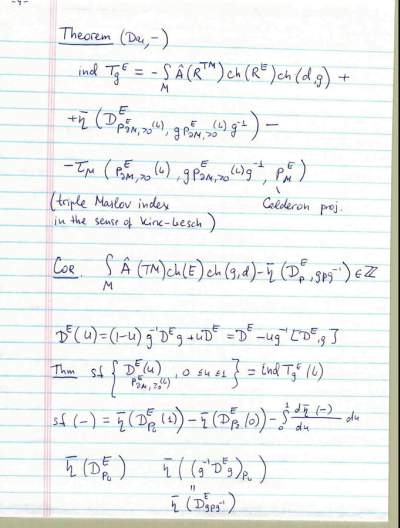 -4-
Theorem (Dai, -)
ind T_g^E = - ∫_M Â(R^{TM}) ch(R^E) ch(d,g) +
+ η̄ (D^E_{P_{∂M,≥0}(L)}, g P^E_{∂M,≥0}(L) g^{-1}) -
- τ_M (P^E_{∂M,≥0}(L), g P^E_{∂M,≥0}(L) g^{-1}, P_M^E)
(triple Maslov index
Calderon proj.
in the sense of Kirk-Lesch)
Cor. ∫_M Â(TM) ch(E) ch(g,d) - η̄ (D_P^E, gPg^{-1}) ∈ ℤ
D^E(u) = (1-u) g^{-1} D^E g + u D^E = D^E - u g^{-1} [D^E, g]
Thm sf { D^E(u)_{P^E_{∂M,≥0}(L)}, 0 ≤ u ≤ 1 } = ind T_g^E (L)
sf (-) = η̄ (D^E_{P_L}(1)) - η̄ (D^E_{P_L}(0)) - ∫_0^1 dη̄(-)/du du
η̄ (D^E_{P_L}) η̄ ((g^{-1} D^E g)_{P_L})
=
η̄ (D^E_{gPg^{-1}})